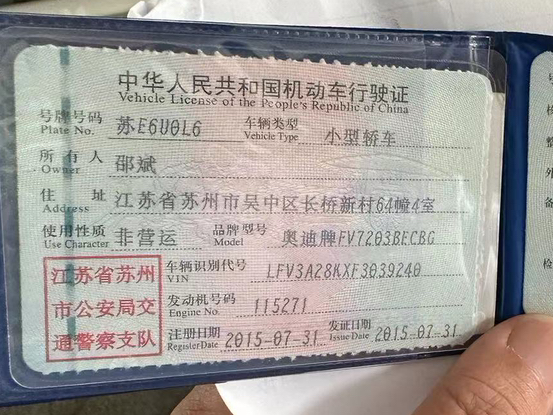 中华人民共和国机动车行驶证
Vehicle License of the People's Republic of China
号牌号码 苏E6U0L6 车辆类型 小型轿车
Plate No. Vehicle Type
所有人 邵斌
Owner
住址 江苏省苏州市吴中区长桥新村64幢4室
Address
使用性质 非营运 品牌型号 奥迪牌FV7203BECBG
Use Character Model
江苏省苏州
市公安局交
通警察支队
车辆识别代号 LFV3A28KXF3039240
VIN
发动机号码 115271
Engine No.
注册日期 2015-07-31 发证日期 2015-07-31
Register Date Issue Date